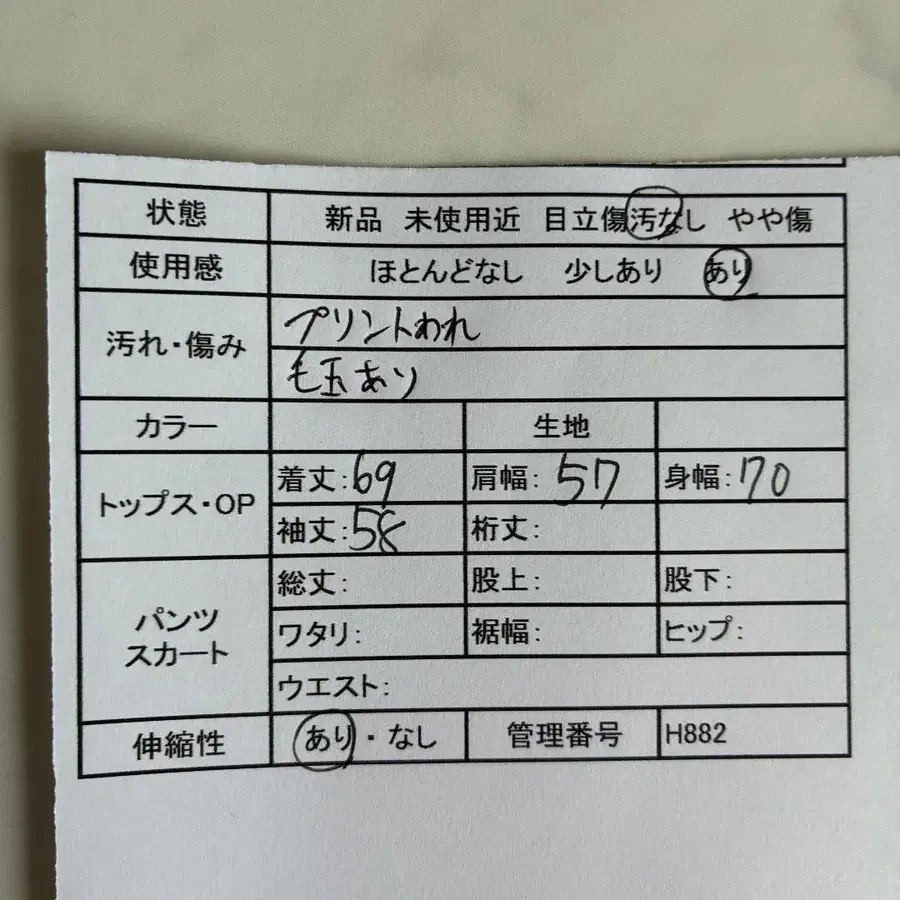 状態 新品 未使用近 目立傷汚なし やや傷
使用感 ほとんどなし 少しあり あり
汚れ・傷み プリントわれ
毛玉あり
カラー 生地
トップス・OP 着丈:69 肩幅:57 身幅:70
袖丈:58 桁丈:
パンツ スカート 総丈: 股上: 股下:
ワタリ: 裾幅: ヒップ:
ウエスト:
伸縮性 あり・なし 管理番号 H882